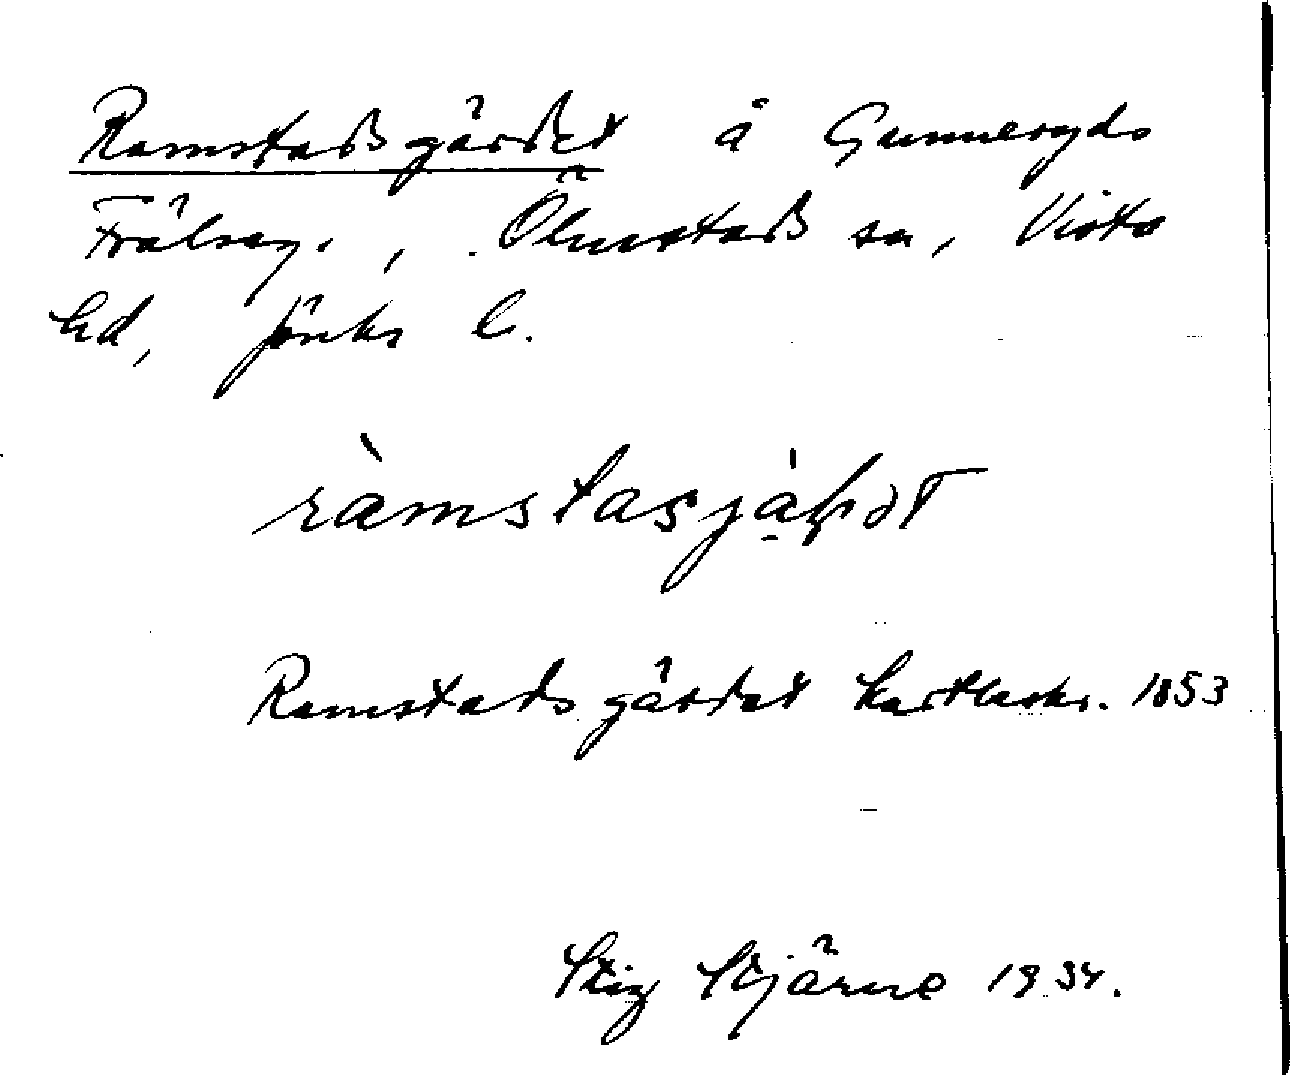 Ramstadsgärdet å Gunneryds
Frälseg., Ölmstads sn, Vista
hd, Jönks l.
ràmstasjä
Ramstads gärdet kartbeskr. 1853
Stig Stjärne 1934.